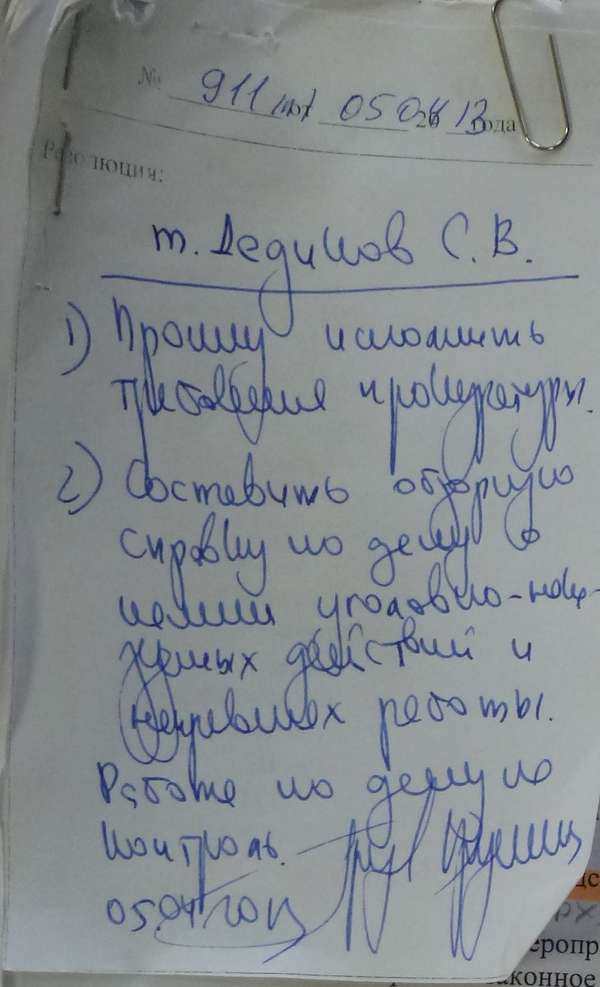 № 911 от 05.04 2013 года
Резолюция:
т. Дедилов С. В.
1) Прошу исполнить
требования прокуратуры.
2) Составить обзорную
справку по делу о
уголовно-нака-
зуемых действий и
работы.
Работа по делу на
контроль.
05.04.2013
дс
рх
еропр
аконное